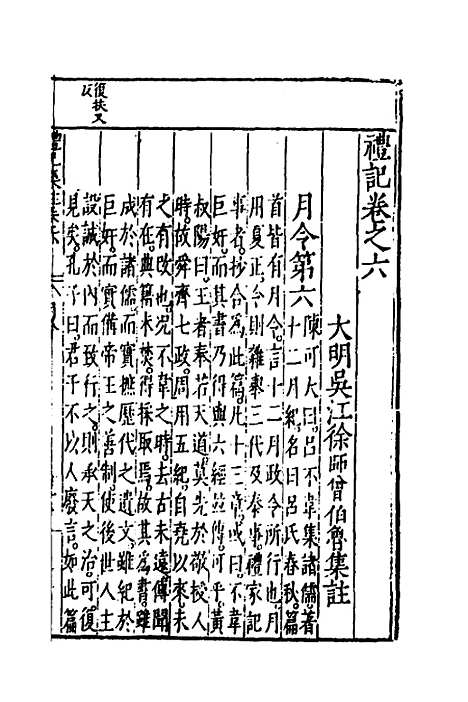 禮記卷之六
大明吳江徐師曾伯魯集註
月令第六
陳可大曰呂不韋集諸儒著
十二月紀名曰呂氏春秋篇
首皆有月令言十二月政令所行也月
用夏正令則雜舉三代及秦事禮家記
事者抄合爲此篇凡十三章或曰不韋
巨奸而其書乃得與六經並傳可乎黃
叔陽曰王者奉若天道莫先於敬授人
時故舜齊七政周用五紀自堯以來未
之有改也况不韋之時去古未遠傳聞
有在典籍未焚得採取焉故其爲書雖
成於諸儒而實摭歷代之遺文雖紀於
巨奸而實備帝王之善制使後世人主
設誠於內而致行之則承天之治可復
見矣孔子曰君子不以人廢言如此篇
復扶又
反